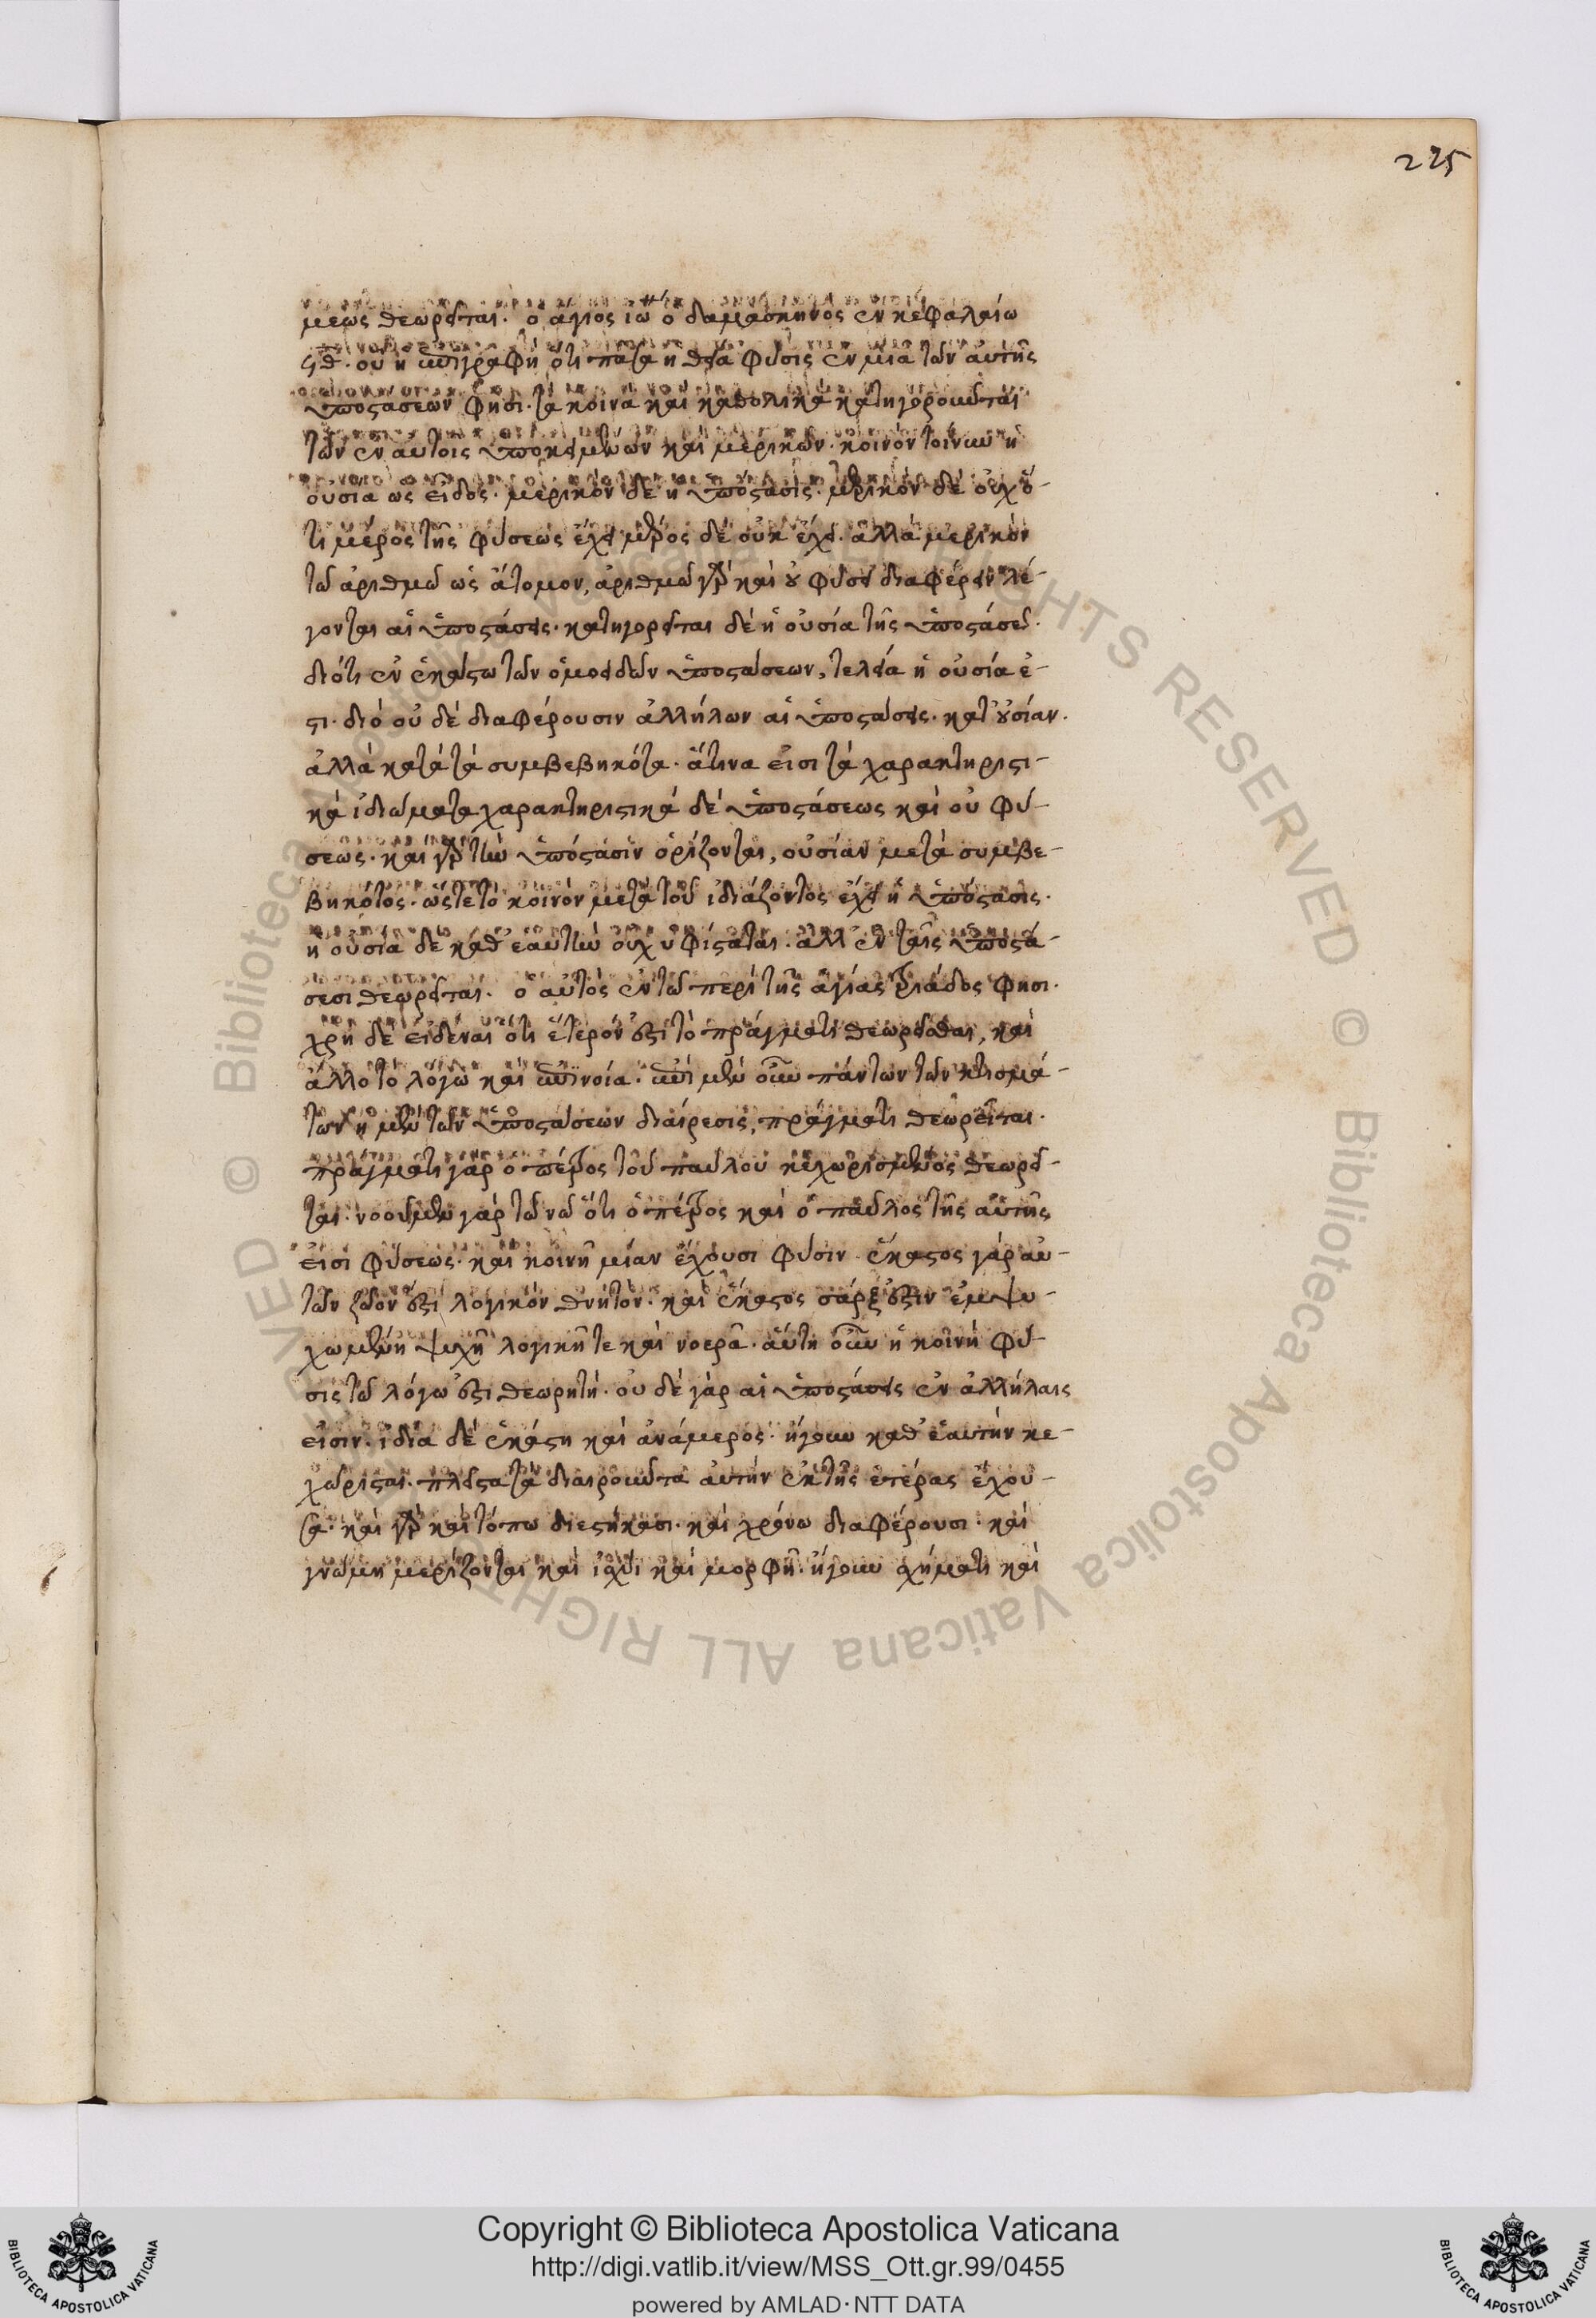 225
μεως θεωρεῖται. ὁ ἅγιος ἰω ὁ δαμασκηνὸς ἐν κεφαλαίω
οὗ ἡ ἐπιγραφὴ ὅτι πᾶσα ἡ θεία φύσις ἐν μιᾶ τῶν αὐτῆς
ὑποστάσεων φησι. τὰ κοινὰ καὶ καθολικὰ κατηγοροῦνται
τῶν ἐν αὐτοῖς ὑποκειμένων καὶ μερικῶν. κοινὸν τοίνυν ἡ
οὐσία ὡς εἶδος. μερικὸν δὲ ἡ ὑπόστασις. μερικὸν δὲ οὐχ ὅ-
τι μέρος τῆς φύσεως ἔχει μέρος δὲ οὐκ ἔχει. ἀλλὰ μερικὸν
τῶ ἀριθμῶ ὡς ἄτομον, ἀριθμῶ γὰρ καὶ οὐ φύσει διαφέρειν λέ-
γονται αἱ ὑποστάσεις. κατηγορεῖται δὲ ἡ οὐσία τῆς ὑποστάσεως.
διότι ἐν ἑκάστω τῶν ὁμοειδῶν ὑποστάσεων, τελεία ἡ οὐσία ἐ-
στι. διὸ οὐ δὲ διαφέρουσιν ἀλλήλων αἱ ὑποστάσεις. κατ' οὐσίαν.
ἀλλὰ κατὰ τὰ συμβεβηκότα. ἅτινα εἰσι τὰ χαρακτηριστι-
κὰ ἰδιώματα χαρακτηριστικὰ δὲ ὑποστάσεως καὶ οὐ φύ-
σεως. καὶ γὰρ τὴν ὑπόστασιν ὁρίζονται, οὐσίαν μετὰ συμβε-
βηκότος. ὥστε τὸ κοινὸν μετὰ τοῦ ἰδιάζοντος ἔχει ἡ ὑπόστασις.
ἡ οὐσία δὲ καθ' ἑαυτὴν οὐχ ὑφίσταται. ἀλλ' ἐν ταῖς ὑποστά-
σεσι θεωρεῖται. ὁ αὐτὸς ἐν τῶ περὶ τῆς ἁγίας τριάδος φησι.
χρὴ δὲ εἰδέναι ὅτι ἕτερόν ἐστι τὸ πράγματι θεωρεῖσθαι, καὶ
ἄλλο τὸ λόγω καὶ ἐπινοία. ἐπὶ μὲν οὖν πάντων τῶν κτισμά-
των ἡ μὲν τῶν ὑποστάσεων διαίρεσις, πράγματι θεωρεῖται.
πράγματι γὰρ ὁ πέτρος τοῦ παύλου κεχωρισμένος θεωρεῖ-
ται. νοοῦμεν γὰρ τῶ νῶ ὅτι ὁ πέτρος καὶ ὁ παῦλος τῆς αὐτῆς
εἰσὶ φύσεως. καὶ κοινῆ μίαν ἔχουσι φύσιν. ἕκαστος γὰρ αὐ-
τῶν ζῶον ἐστὶ λογικὸν θνητόν. καὶ ἕκαστος σάρξ ἐστιν ἐμψυ-
χωμένη ψυχῆ λογικῆ τε καὶ νοερᾶ. αὕτη οὖν ἡ κοινὴ φύ-
σις τῶ λόγω ἐστὶ θεωρητή. οὐ δὲ γὰρ αἱ ὑποστάσεις ἐν ἀλλήλαις
εἰσίν. ἰδία δὲ ἑκάστη καὶ ἀνάμερος. ἤγουν καθ' ἑαυτὴν κε-
χώρισται. πλεῖστα τὰ διαιροῦντα αὐτὴν ἐκ τῆς ἑτέρας ἔχου-
σα. καὶ γὰρ καὶ τόπω διεστήκασι. καὶ χρόνω διαφέρουσι. καὶ
γνώμη μερίζονται καὶ ἰσχύι καὶ μορφῆ. ἤγουν σχήματι καὶ
Copyright © Biblioteca Apostolica Vaticana
http://digi.vatlib.it/view/MSS_Ott.gr.99/0455
powered by AMLAD·NTT DATA